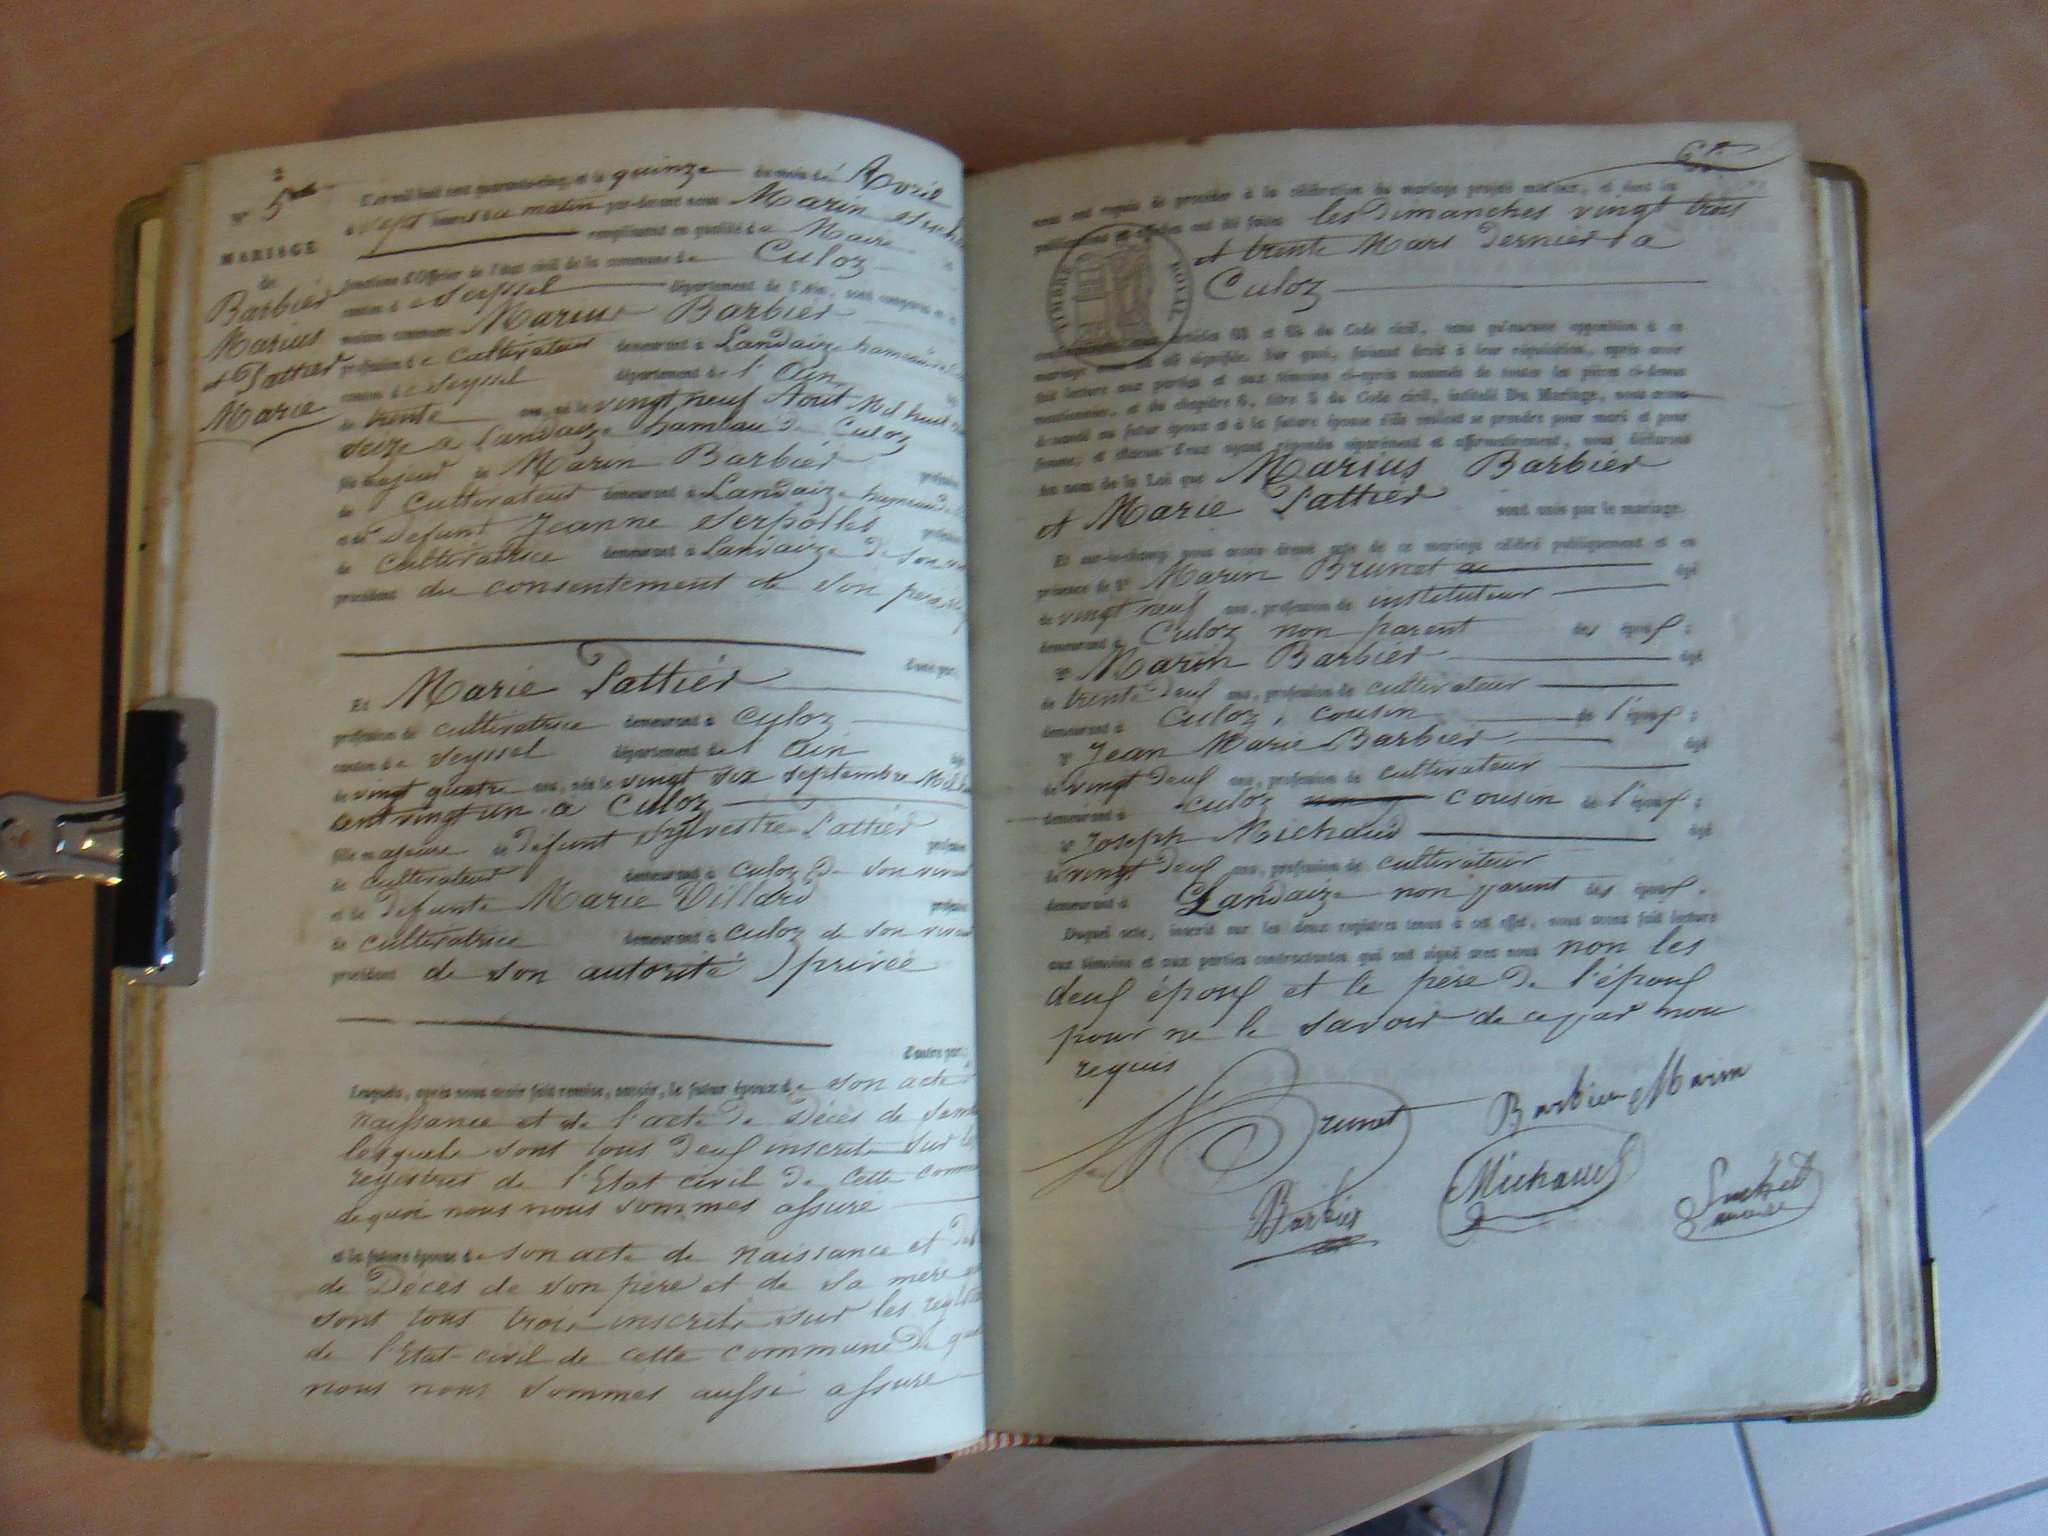 2
N° 5
L'an mil huit cent quarante cinq, et le quinze du mois de Avril
à sept heures du matin par-devant nous Marin
remplissant en qualité de Maire
MARIAGE
de
Barbier
Marius
et Pattier
Marie
fonctions d'Officier de l'état civil de la commune de Culoz
canton de Seyssel département de l'Ain, sont comparus en
maison commune Marius Barbier
profession de cultivateur demeurant à Landaize hameau
canton de Seyssel département de l'Ain
de trente ans, né le vingt neuf Aout Mil huit
seize a Landaize hameau de Culoz
fils majeur de Marin Barbier profession
de Cultivateur demeurant à Landaize hameau de
et de défunt Jeanne Serpollet profession
de Cultivatrice demeurant à Landaize de son
procédant du consentement de son pere
d'une part;
Et Marie Pattier
profession de cultivatrice demeurant à Culoz
canton de Seyssel département de l'Ain
de vingt quatre ans, née le vingt six septembre Mil
cent vingt un a Culoz
fille majeure de défunt Sylvestre Pattier profession
de cultivateur demeurant à Culoz de son vivant
et de defunte Marie Villard profession
de cultivatrice demeurant à Culoz de son vivant
procédant de son autorité privée
d'autre part;
Lesquels, après nous avoir fait remise, savoir, le futur époux de son acte
naissance et de l'acte de Décès de sa
lesquels sont tous deux inscrits sur les
registres de l'Etat civil de cette commune
de quoi nous nous sommes assuré
et la future épouse de son acte de naissance et
de Décès de son père et de sa mere
sont tous trois inscrits sur les registres
de l'Etat civil de cette commune de quoi
nous nous sommes aussi assuré
nous ont requis de procéder à la célébration du mariage projeté entr'eux, et dont les
publications ont été faites les Dimanches vingt trois
et trente Mars dernier a
Culoz
conformément aux articles 63 et 64 du Code civil, sans qu'aucune opposition à ce
mariage nous ait été signifiée. Sur quoi, faisant droit à leur réquisition, après avoir
fait lecture aux parties et aux témoins ci-après nommés de toutes les pièces ci-dessus
mentionnées, et du chapitre 6, titre 5 du Code civil, intitulé Du Mariage, nous avons
demandé au futur époux et à la future épouse s'ils veulent se prendre pour mari et pour
femme, et chacun d'eux ayant répondu séparément et affirmativement, nous déclarons
Au nom de la Loi que Marius Barbier
et Marie Pattier sont unis par le mariage.
Et sur-le-champ nous avons dressé acte de ce mariage célébré publiquement et en
présence de 1° Marin Brunet âgé
de vingt neuf ans, profession de instituteur
demeurant à Culoz non parent des époux;
2° Marin Barbier âgé
de trente deux ans, profession de cultivateur
demeurant à Culoz, cousin de l'époux;
3° Jean Marie Barbier âgé
de vingt deux ans, profession de cultivateur
demeurant à Culoz cousin de l'époux;
4° Joseph Michaud âgé
de vingt deux ans, profession de cultivateur
demeurant à Landaize non parent des époux.
Duquel acte, inscrit sur les deux registres tenus à cet effet, nous avons fait lecture
aux témoins et aux parties contractantes qui ont signé avec nous non les
deux époux et le père de l'époux
pour ne le savoir de ce par nou
requis
Brunet
Barbier Marin
Barbier
Michaud
Suchet
maire